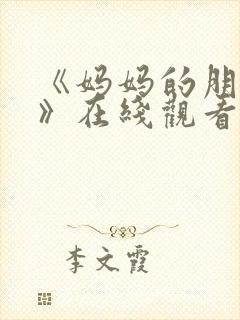 《妈妈的朋
》在线觀看
李文霞